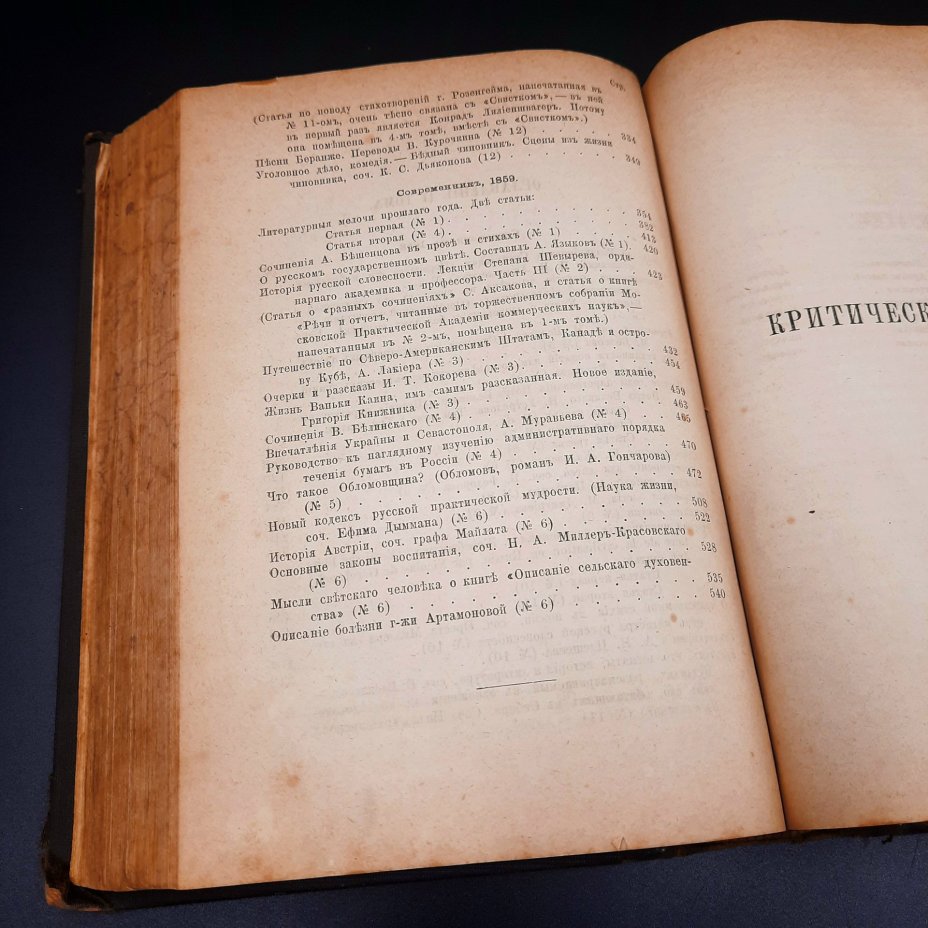 Стр.
(Статья по поводу стихотвореній г. Розенгейма, напечатанная въ
№ 11-омъ, очень тѣсно связана съ «Свисткомъ»,— въ ней
въ первый разъ является Конрадъ Лиліеншвагеръ. Потому
она помѣщена въ 4-мъ томѣ, вмѣстѣ съ «Свисткомъ».)
Пѣсни Беранже. Переводы В. Курочкина (№ 12) 334
Уголовное дѣло, комедія.— Бѣдный чиновникъ. Сцены изъ жизни
чиновника, соч. К. С. Дьяконова (12) 349
Современникъ, 1859.
Литературныя мелочи прошлаго года. Двѣ статьи:
Статья первая (№ 1) 354
Статья вторая (№ 4) 382
Сочиненія А. Бѣшенцова въ прозѣ и стихахъ (№ 1) 413
О русскомъ государственномъ цвѣтѣ. Составилъ А. Языковъ (№ 1) 420
Исторія русской словесности. Лекціи Степана Шевырева, орди-
нарнаго академика и профессора. Часть III (№ 2) 423
(Статья о «разныхъ сочиненіяхъ» С. Аксакова, и статья о книгѣ
«Рѣчи и отчетъ, читанные въ торжественномъ собраніи Мо-
сковской Практической Академіи коммерческихъ наукъ»,—
напечатанныя въ № 2-мъ, помѣщена въ 1-мъ томѣ.)
Путешествіе по Сѣверо-Американскимъ Штатамъ, Канадѣ и остро-
ву Кубѣ, А. Лакіера (№ 3) 432
Очерки и разсказы И. Т. Кокорева (№ 3) 454
Жизнь Ваньки Каина, имъ самимъ разсказанная. Новое изданіе,
Григорія Книжника (№ 3) 459
Сочиненія В. Бѣлинскаго (№ 4) 463
Впечатлѣнія Украйны и Севастополя, А. Муравьева (№ 4) 465
Руководство къ наглядному изученію административнаго порядка
теченія бумагъ въ Россіи (№ 4) 470
Что такое Обломовщина? (Обломовъ, романъ И. А. Гончарова)
(№ 5) 472
Новый кодексъ русской практической мудрости. (Наука жизни,
соч. Ефима Дыммана) (№ 6) 508
Исторія Австріи, соч. графа Майлата (№ 6) 522
Основные законы воспитанія, соч. Н. А. Миллеръ-Красовскаго
(№ 6) 528
Мысли свѣтскаго человѣка о книгѣ «Описаніе сельскаго духовен-
ства» (№ 6) 535
Описаніе болѣзни г-жи Артамоновой (№ 6) 540
КРИТИЧЕСК